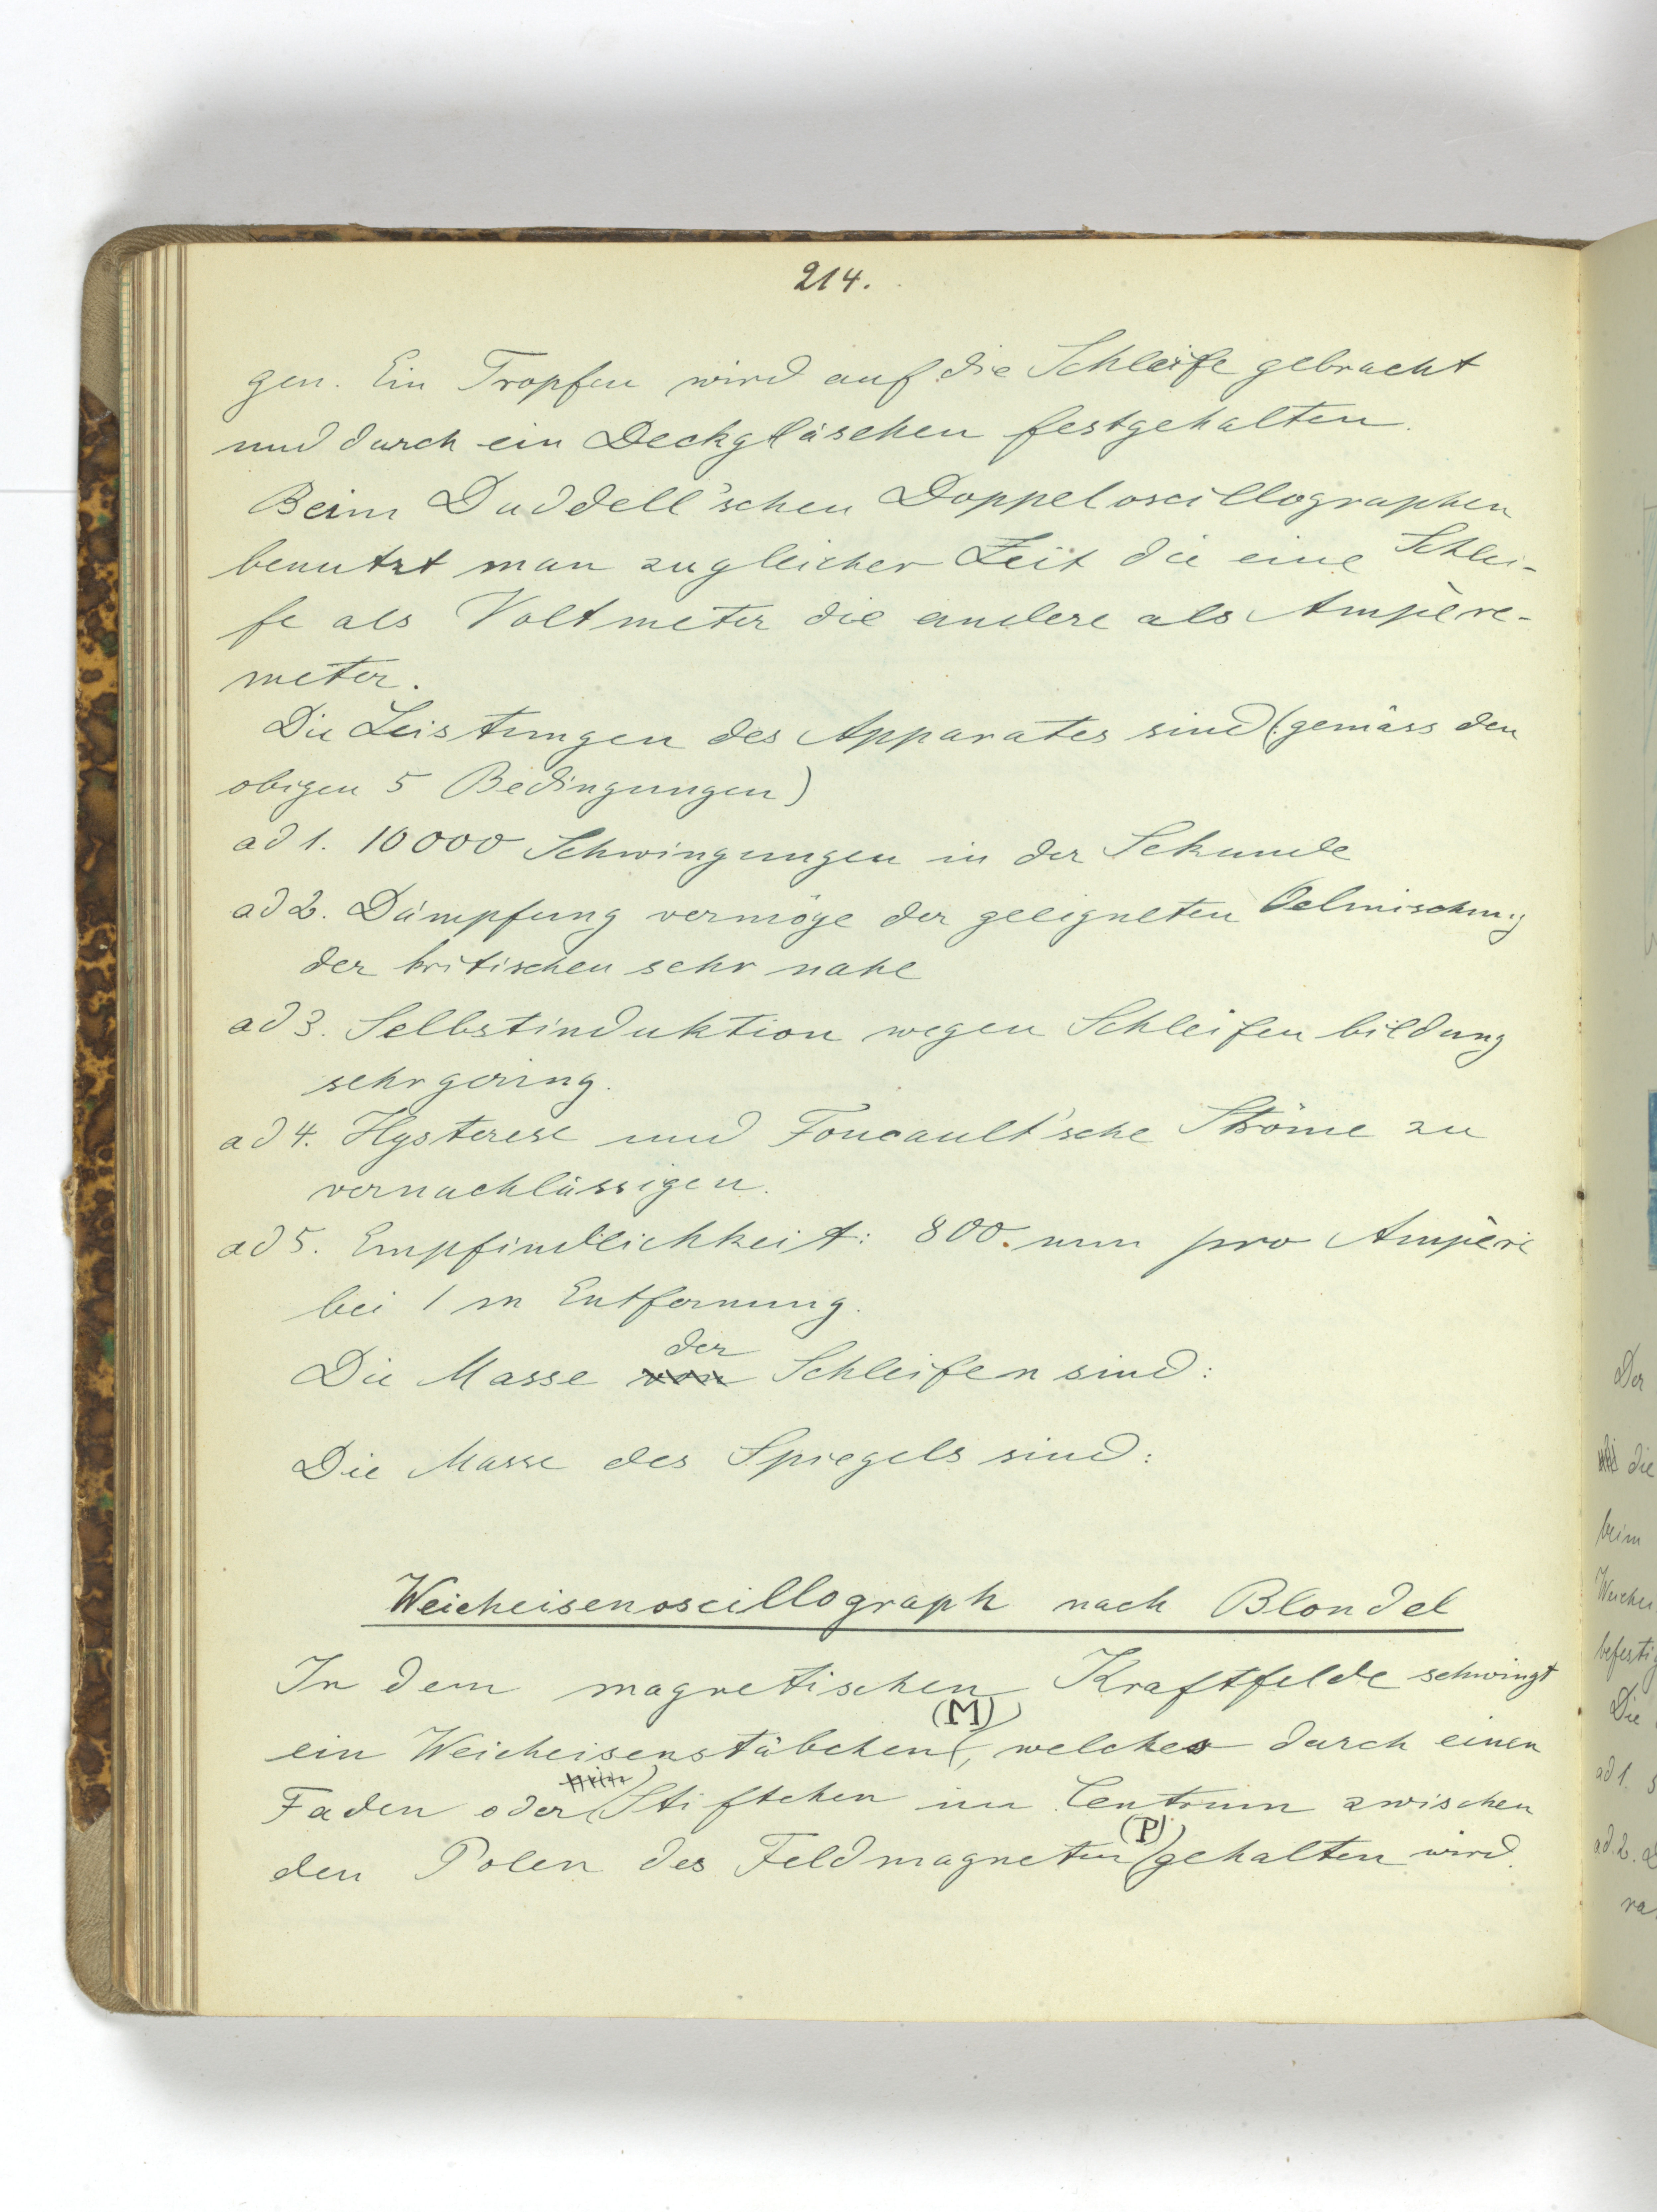 214.
gen. Ein Tropfen wird auf die Schleife gebracht
und durch ein Deckgläschen festgehalten.
Beim Duddell'schen Doppeloscillographen
benutzt man zugleicher Zeit die eine Schlei-
fe als Voltmeter die andere als Ampère-
meter.
Die Leistungen des Apparates sind (gemäss den
obigen 5 Bedingungen)
ad 1. 10000 Schwingungen in der Sekunde
ad 2. Dämpfung vermöge der geeigneten Oelmischung
der kritischen sehr nahe
ad 3. Selbstinduktion wegen Schleifenbildung
sehr gering.
ad 4. Hysterese und Foucault'sche Ströme zu
vernachlässigen.
ad 5. Empfindlichkeit: 800. mm pro Ampère
bei 1 m Entfernung.
der
Die Masse von Schleifen sind:
Die Masse des Spiegels sind:
Weicheisenoscillograph nach Blondel
In dem magnetischen Kraftfelde schwingt
(M)
ein Weicheisenstäbchen, welches durch einen
Faden oder Stiftchen im Centrum zwischen
(P)
den Polen des Feldmagneten gehalten wird.
Der
die
beim
Weichei
befestig
Die
ad 1. s
ad. 2. d